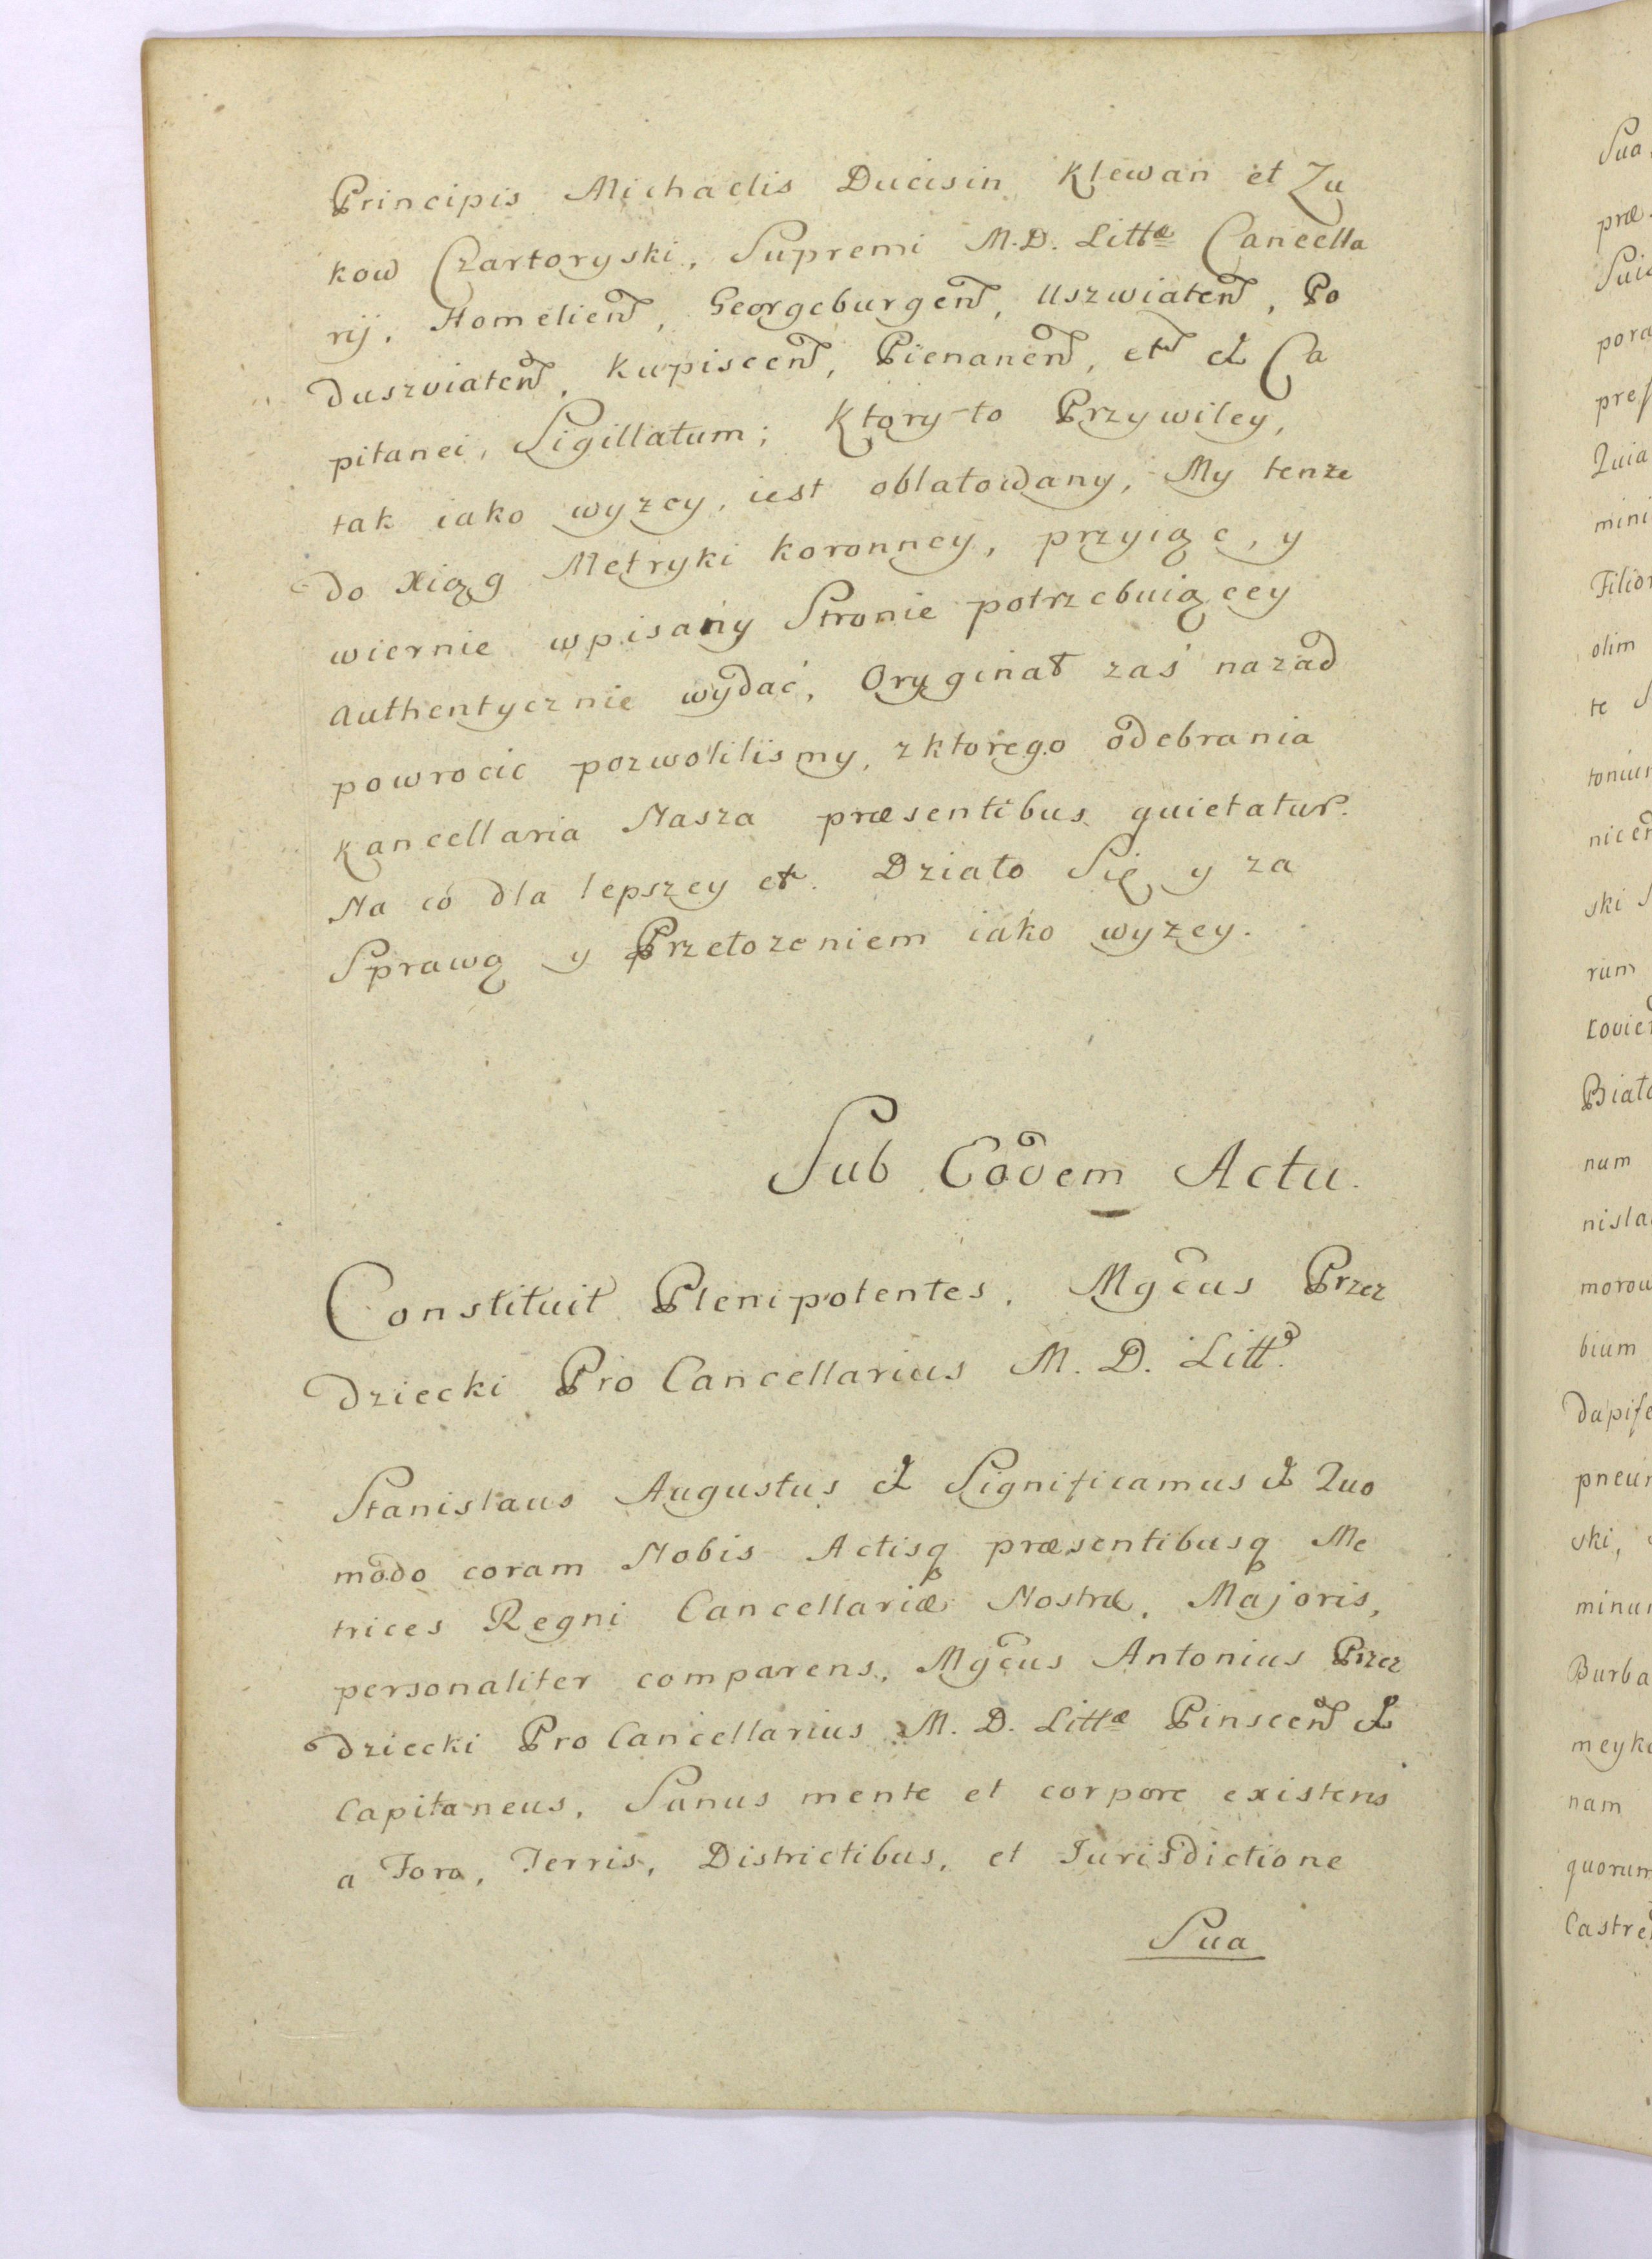 Principis Michaelis Ducis in Klewań et Zu
kow Czartoryski, Supremi M. D. Littæ Cancella
rij, Homelien, Georgeburgen, Uszwiaten, Po
duszwiaten, Kupiscen, Pienanen, etc et Ca
pitanei, Sigillatum; Ktory-to Przywiley,
tak iako wyzey, iest oblatowany, My tenze
do Xiąg Metryki Koronney, przyiąc, y
wiernie wpisany Stronie potrzebuiącey
Authentycznie wydać, Oryginał zaś nazad
powrocic pozwolilismy, z ktorego odebrania
Kancellaria Nasza præsentibus quietatur.
Na co dla lepszey etc. Działo Się y za
Sprawą y Przełozeniem iako wyzey.
Sub Eodem Actu.
Constituit Plenipotentes, Mgcus Przez
dziecki Pro Cancellarius M. D. Litt.
Stanislaus Augustus et Significamus et Quo
modo coram Nobis Actisq præsentibusq Me
trices Regni Cancellariæ Nostræ, Majoris,
personaliter comparens, Mgcus Antonius Przez
dziecki Pro Cancellarius M. D. Littæ Pinscen et
Capitaneus, Sanus mente et corpore existens
a Foro, Terris, Districtibus, et Iurisdictione
Sua
Sua
præ
pora
Quia
mini
olim
te
ski
rum
num
bium
ski,
nam
quorum